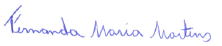 Fernanda Maria Martins